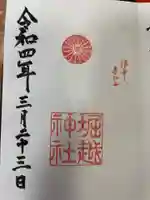 堀越
神社
令和四年三月二十三日